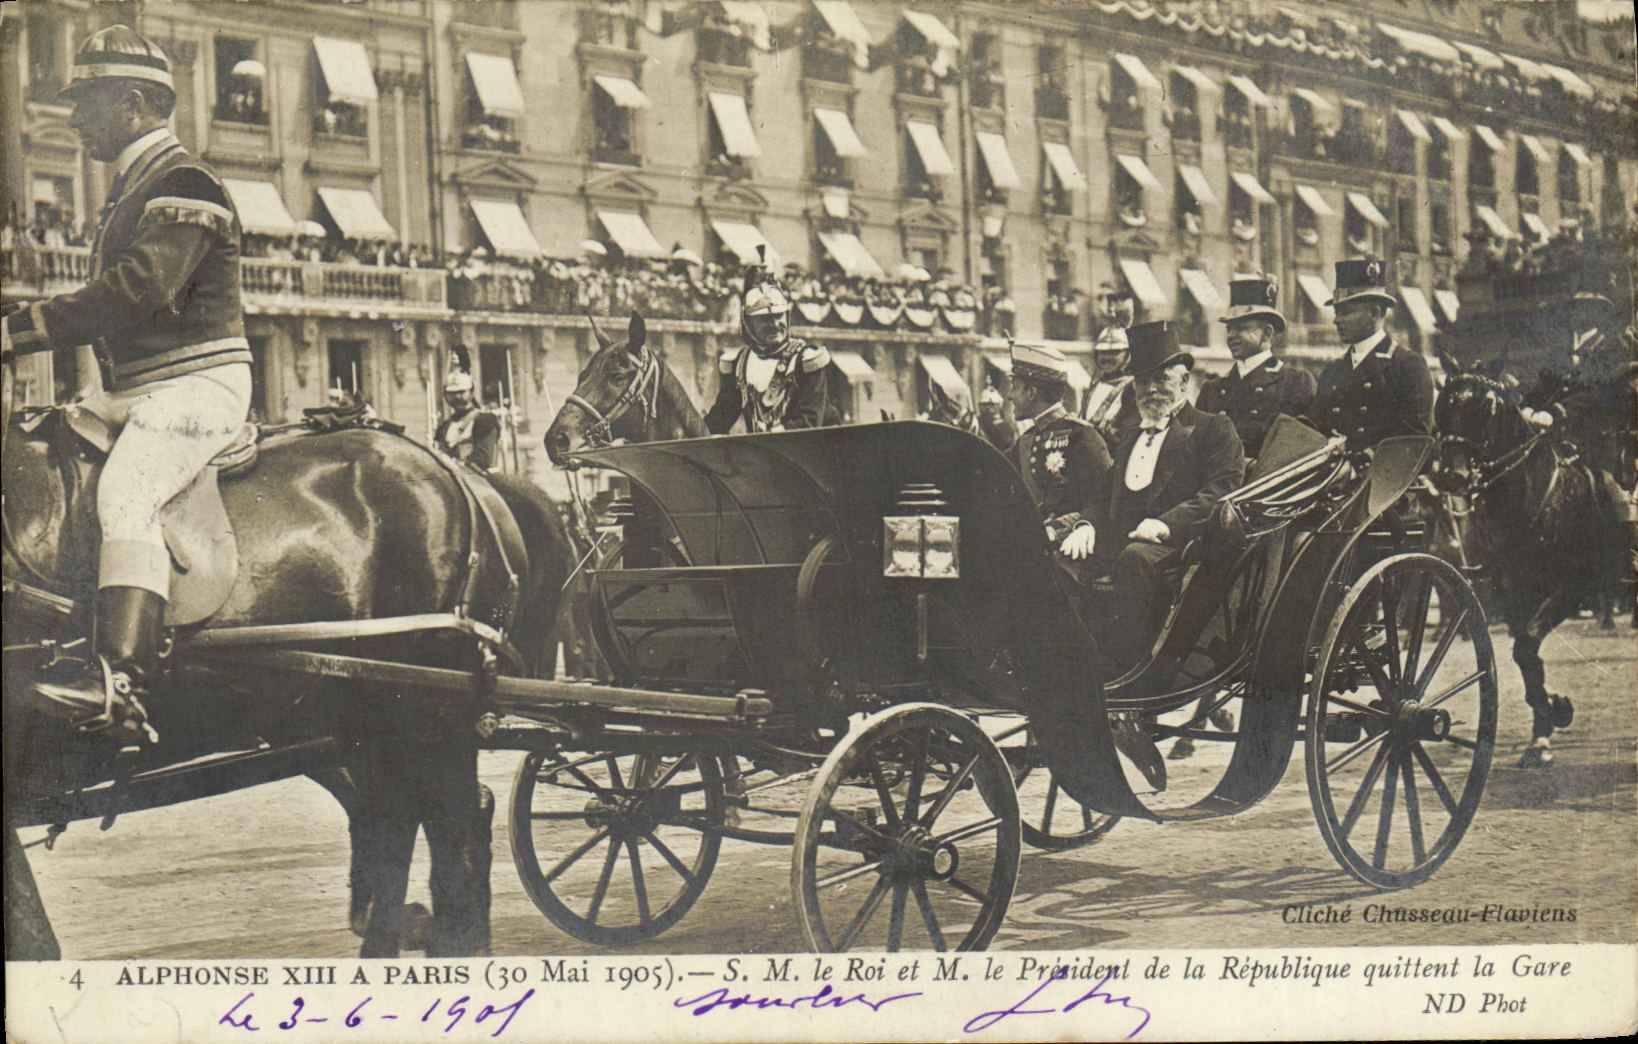 Cliché Chusseau-Flaviens
4 ALPHONSE XIII A PARIS (30 Mai 1905).— S. M. le Roi et M. le Président de la République quittent la Gare
ND Phot
Le 3-6-1905